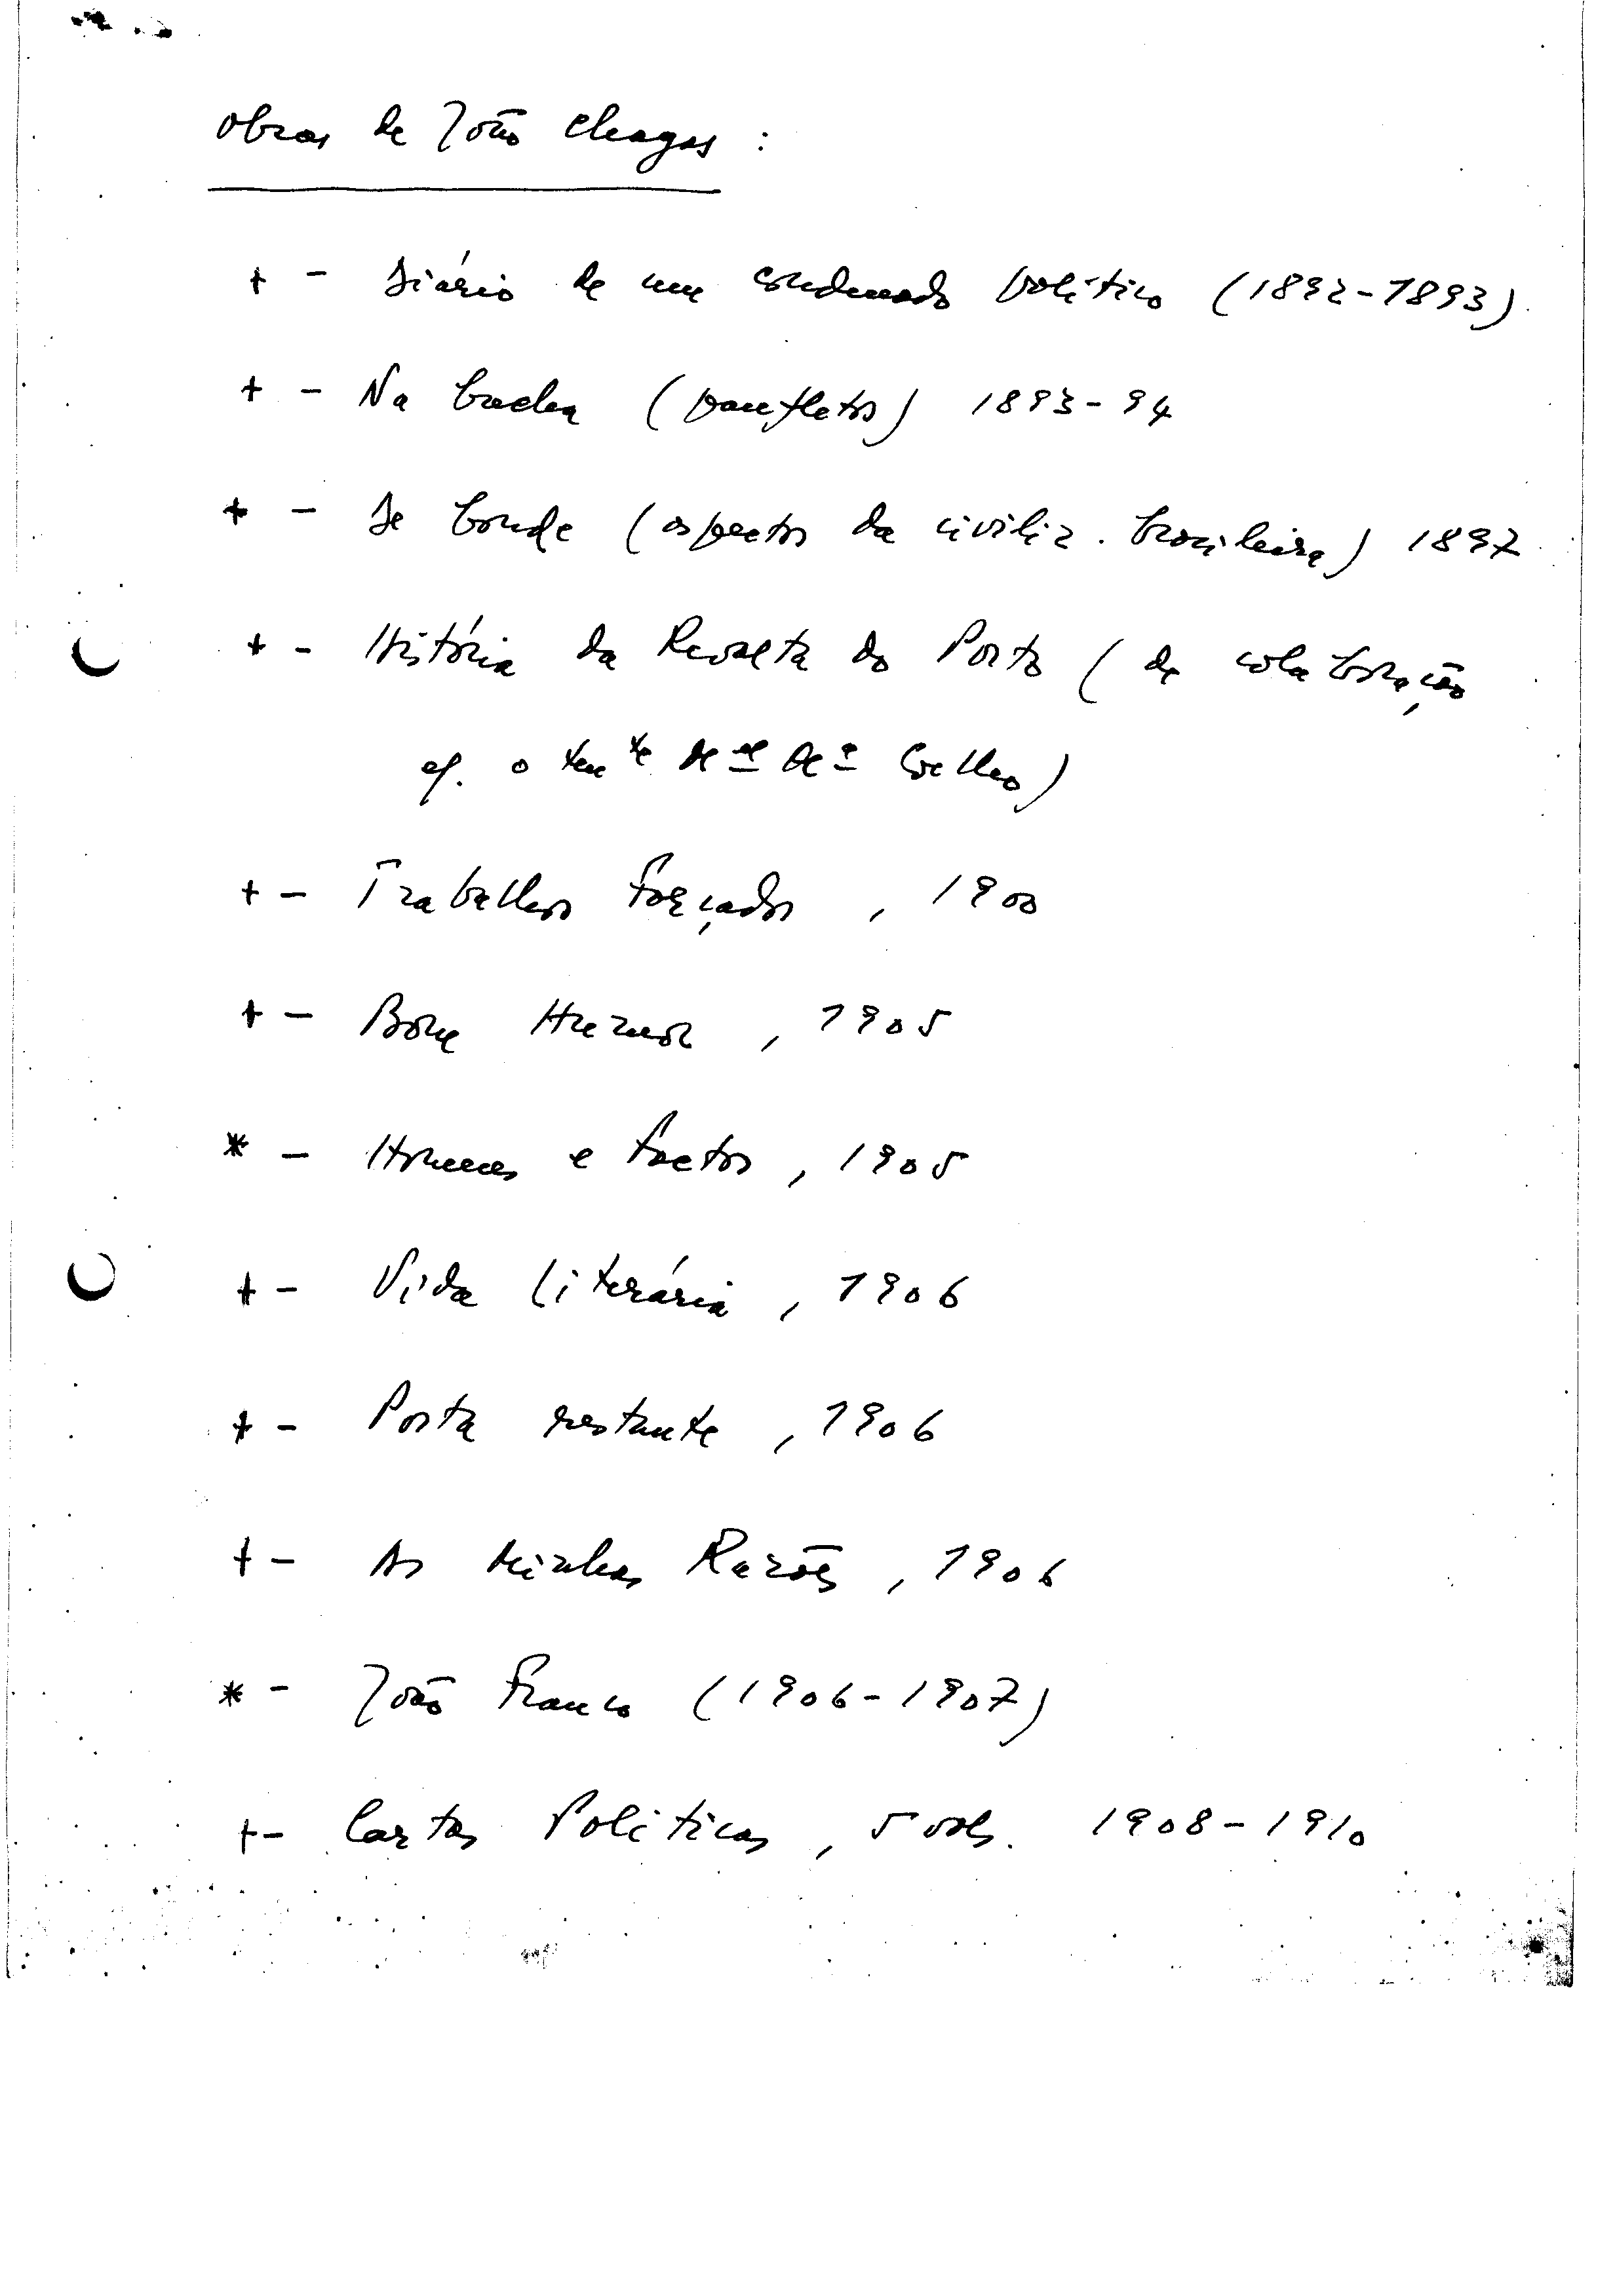 Obras de João Chagas :
+ - Diário de um condenado político (1892-1893).
+ - Na brecha (panfletos) 1893-94
+ - De bonde (aspectos da civiliz. brasileira) 1897
+ - História da Revolta do Porto (de colaboração
c/. o ten.te Coelho)
+ - Trabalhos Forçados, 1900
+ - Bom Humor, 1905
* - Homens e Factos, 1905
+ - Vida Literária, 1906
+ - Posta restante, 1906
+ - As Minhas Razões, 1906
* - João Franco (1906-1907)
+ - Cartas Políticas, 5 vols. 1908-1910